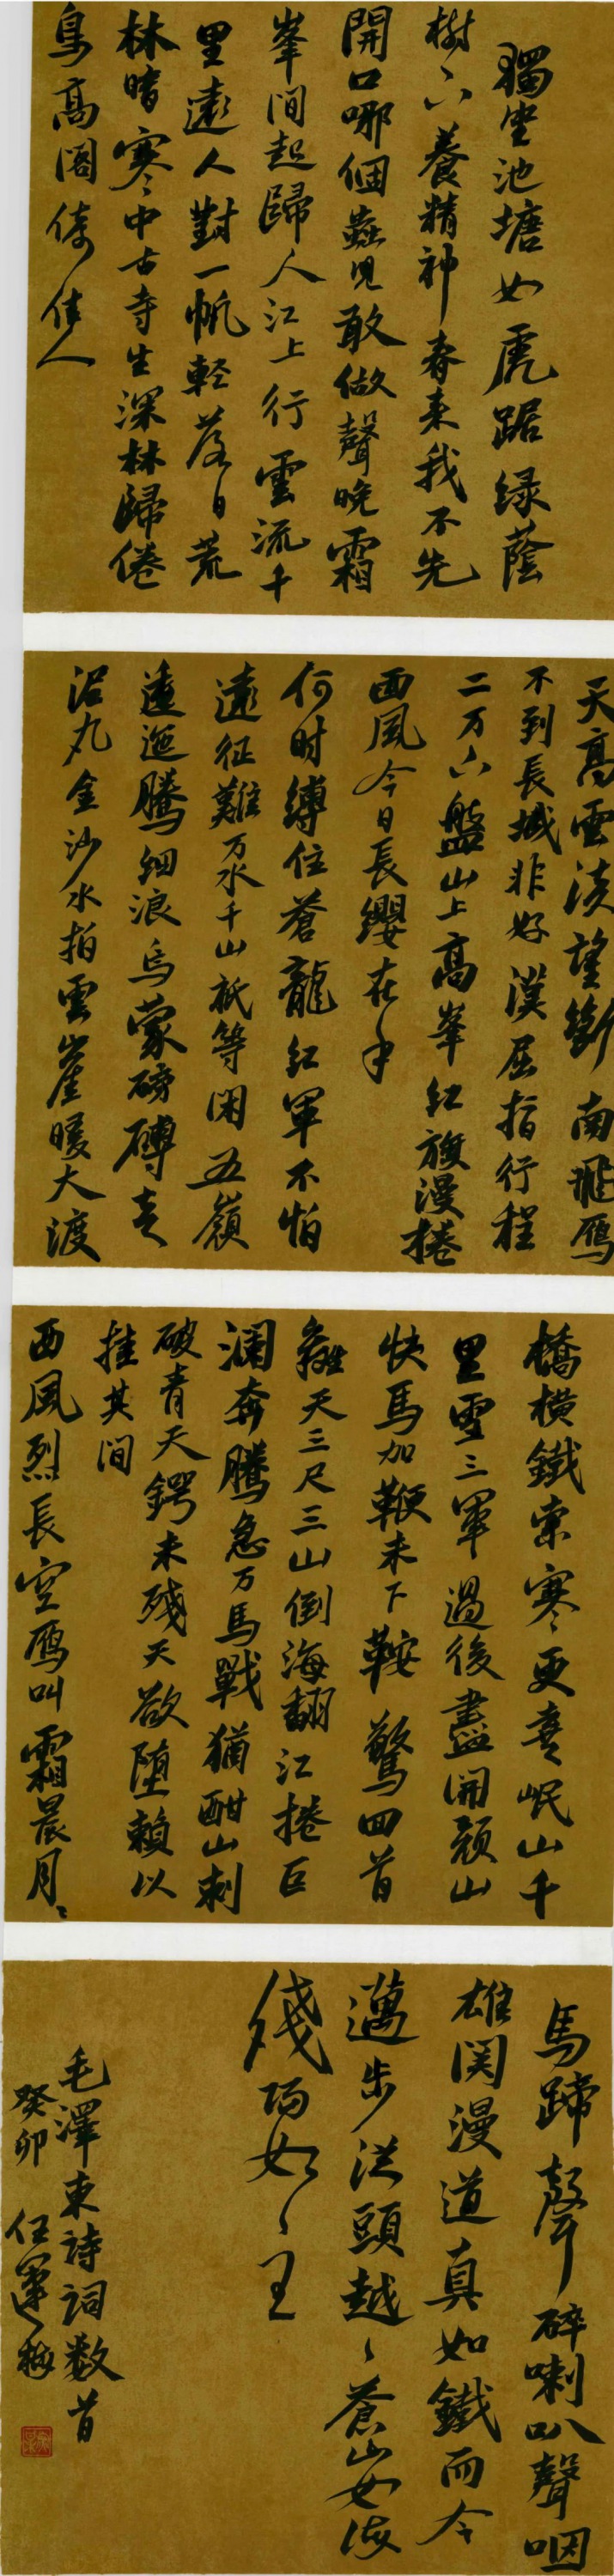 獨坐池塘如虎踞绿蔭
樹下養精神春来我不先
開口哪個蟲児敢做聲晚霜
峯間起歸人江上行雲流千
里遠人對一帆輕落日荒
林暗寒中古寺生深林歸倦
鳥高阁倚佳人
天高雲淡望斷南飛雁
不到長城非好漢屈指行程
二万六盤山上高峯红旗漫捲
西風今日長纓在手
何时縛住蒼龍红軍不怕
遠征難万水千山祇等闲五嶺
逶迤騰细浪烏蒙磅礴走
泥丸金沙水拍雲崖暖大渡
橋橫鐵索寒更喜岷山千
里雪三軍過後盡開颜山
快馬加鞭未下鞍驚回首
離天三尺三山倒海翻江捲巨
澜奔騰急万馬戰猶酣山刺
破青天鍔未殘天欲堕賴以
拄其间
西風烈長空雁叫霜晨月〻
馬蹄聲碎喇叭聲咽
雄関漫道真如鐵而今
邁步從頭越〻蒼山如海
残陽如〻
毛澤東詩詞數首
癸卯 任運